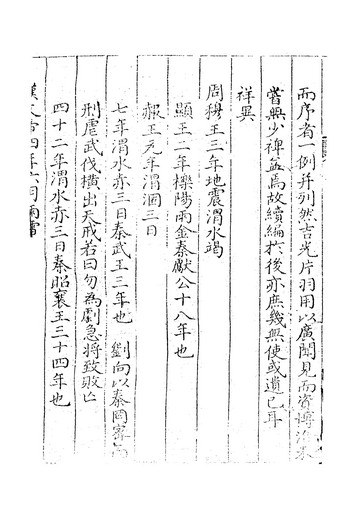 而序者一例并列然吉光片羽用以廣聞見而資博洽未
嘗無少裨益焉故續編於後亦庶幾無使或遺已耳
祥異
周穆王三年地震渭水竭
顯王二年櫟陽雨金秦獻公十八年也
赧王元年渭涸三日
七年渭水赤三日秦武王三年也 劉向以秦
刑虐武伐橫出天戒若曰勿為劇急將致敗亡
四十二年渭水赤三日秦昭襄王三十四年也
漢文帝四年六月雨雪